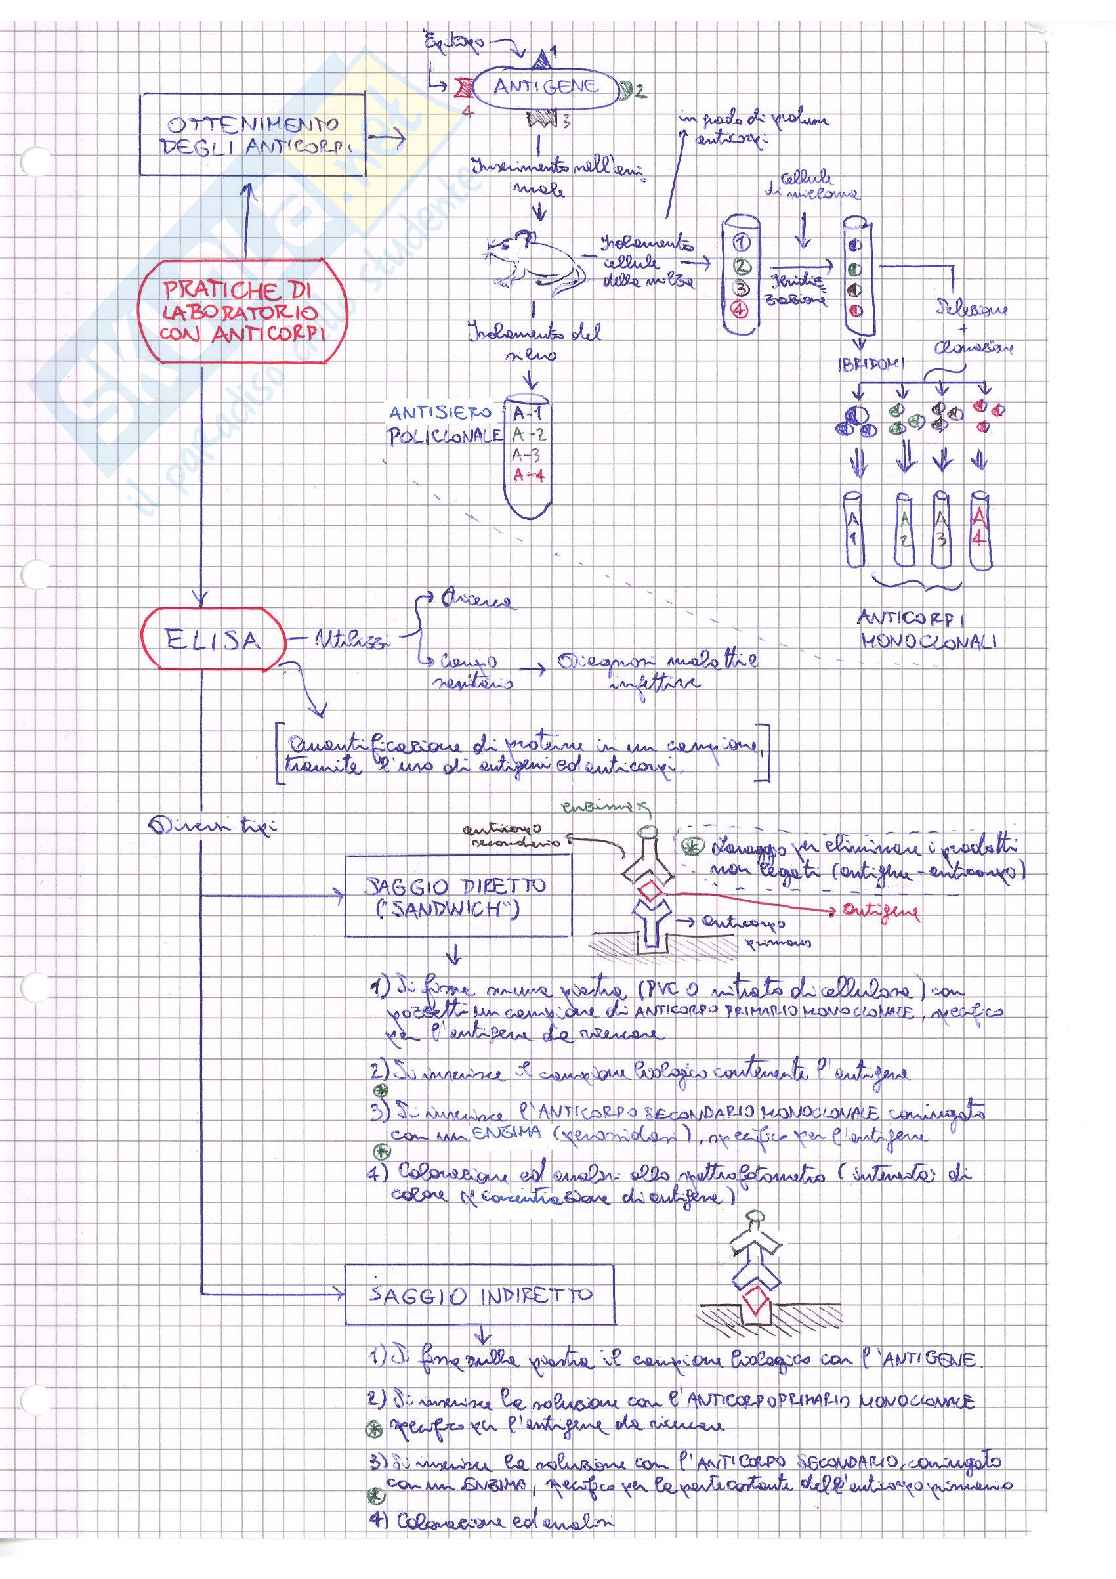 Epitopo
1
ANTIGENE
2
4
3
OTTENIMENTO
DEGLI ANTICORPI
in grado di produrre
anticorpi
Inserimento nell'ani
male
cellule
di mieloma
PRATICHE DI
LABORATORIO
CON ANTICORPI
Isolamento
cellule
della milza
1
2
3
4
Ibridiz
zazione
Selezione
+
Clonazione
Isolamento del
siero
IBRIDOMI
ANTISIERO
POLICLONALE
A-1
A-2
A-3
A-4
A
1
A
2
A
3
A
4
ANTICORPI
MONOCLONALI
ELISA
Utilizzi
Ricerca
Campo
sanitario
Diagnosi malattie
infettive
Quantificazione di proteine in un campione,
tramite l'uso di antigeni ed anticorpi.
Diversi tipi
enzima
anticorpo
secondario
Lavaggio per eliminare i prodotti
non legati (antigene-anticorpo)
antigene
anticorpo
primario
SAGGIO DIRETTO
("SANDWICH")
1) Si fissa su una piastra (PVC O nitrato di cellulosa) con
pozzetti un campione di ANTICORPO PRIMARIO MONOCLONALE, specifico
per l'antigene da ricercare
2) Si inserisce il campione biologico contenente l'antigene
3) Si inserisce l'ANTICORPO SECONDARIO MONOCLONALE coniugato
con un ENZIMA (perossidasi), specifico per l'antigene
4) Colorazione ed analisi allo spettrofotometro (intensità di
colore ∝ concentrazione di antigene)
SAGGIO INDIRETTO
1) Si fissa sulla piastra il campione biologico con l'ANTIGENE.
2) Si inserisce la soluzione con l'ANTICORPO PRIMARIO MONOCLONALE
specifico per l'antigene da ricercare
3) Si inserisce la soluzione con l'ANTICORPO SECONDARIO, coniugato
con un ENZIMA, specifico per la parte costante dell'anticorpo primario
4) Colorazione ed analisi
skuola.net
il paradiso dello studente